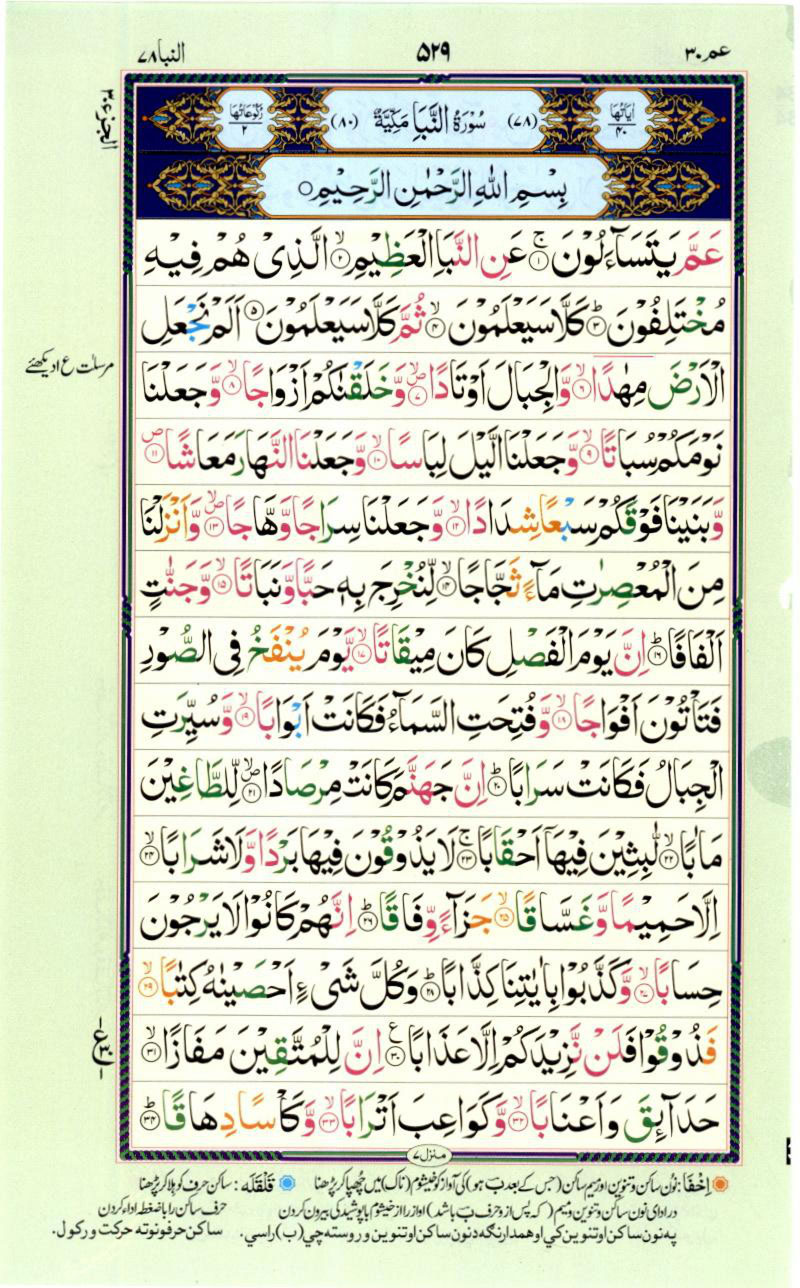 عم ۳۰
۵۲۹
النبا ۷۸
الجزء ۳۰
اٰیاتها ۴۰
(۷۸) سُوْرَةُ النَّبَاِ مَكِّيَّةٌ (۸۰)
رکوعاتها ۲
بِسْمِ اللهِ الرَّحْمٰنِ الرَّحِيْمِ ○
عَمَّ يَتَسَآءَلُوْنَ ۚ‏﴿۱﴾ عَنِ النَّبَاِ الْعَظِيْمِۙ‏﴿۲﴾ الَّذِىْ هُمْ فِيْهِ
مُخْتَلِفُوْنَؕ‏﴿۳﴾ كَلَّا سَيَعْلَمُوْنَۙ‏﴿۴﴾ ثُمَّ كَلَّا سَيَعْلَمُوْنَ‏﴿۵﴾ اَلَمْ نَجْعَلِ
مرسلات ع ا دیکھئے
الْاَرْضَ مِهٰدًاۙ‏﴿۶﴾ وَّالْجِبَالَ اَوْتَادًاۖ‏﴿۷﴾ وَّخَلَقْنٰكُمْ اَزْوَاجًاۙ‏﴿۸﴾ وَّجَعَلْنَا
نَوْمَكُمْ سُبَاتًاۙ‏﴿۹﴾ وَّجَعَلْنَا الَّيْلَ لِبَاسًاۙ‏﴿۱۰﴾ وَّجَعَلْنَا النَّهَارَ مَعَاشًاۖ‏﴿۱۱﴾
وَّبَنَيْنَا فَوْقَكُمْ سَبْعًا شِدَادًاۙ‏﴿۱۲﴾ وَّجَعَلْنَا سِرَاجًا وَّهَّاجًاۖ‏﴿۱۳﴾ وَّاَنْزَلْنَا
مِنَ الْمُعْصِرٰتِ مَآءً ثَجَّاجًاۙ‏﴿۱۴﴾ لِّنُخْرِجَ بِهٖ حَبًّا وَّنَبَاتًاۙ‏﴿۱۵﴾ وَّجَنّٰتٍ
اَلْفَافًاؕ‏﴿۱۶﴾ اِنَّ يَوْمَ الْفَصْلِ كَانَ مِيْقَاتًاۙ‏﴿۱۷﴾ يَّوْمَ يُنْفَخُ فِى الصُّوْرِ
فَتَاْتُوْنَ اَفْوَاجًاۙ‏﴿۱۸﴾ وَّفُتِحَتِ السَّمَآءُ فَكَانَتْ اَبْوَابًاۙ‏﴿۱۹﴾ وَّسُيِّرَتِ
الْجِبَالُ فَكَانَتْ سَرَابًاؕ‏﴿۲۰﴾ اِنَّ جَهَنَّمَ كَانَتْ مِرْصَادًاۖ‏﴿۲۱﴾ لِّلطَّاغِيْنَ
مَاٰبًاۙ‏﴿۲۲﴾ لّٰبِثِيْنَ فِيْهَاۤ اَحْقَابًاۚ‏﴿۲۳﴾ لَا يَذُوْقُوْنَ فِيْهَا بَرْدًا وَّلَا شَرَابًاۙ‏﴿۲۴﴾
اِلَّا حَمِيْمًا وَّغَسَّاقًاۙ‏﴿۲۵﴾ جَزَآءً وِّفَاقًاؕ‏﴿۲۶﴾ اِنَّهُمْ كَانُوْا لَا يَرْجُوْنَ
حِسَابًاۙ‏﴿۲۷﴾ وَّكَذَّبُوْا بِاٰيٰتِنَا كِذَّابًاؕ‏﴿۲۸﴾ وَكُلَّ شَىْءٍ اَحْصَيْنٰهُ كِتٰبًاۙ‏﴿۲۹﴾
فَذُوْقُوْا فَلَنْ نَّزِيْدَكُمْ اِلَّا عَذَابًا‏﴿۳۰﴾ اِنَّ لِلْمُتَّقِيْنَ مَفَازًاۙ‏﴿۳۱﴾
ع ۳۰
حَدَآئِقَ وَاَعْنَابًاۙ‏﴿۳۲﴾ وَّكَوَاعِبَ اَتْرَابًاۙ‏﴿۳۳﴾ وَّكَاْسًا دِهَاقًاؕ‏﴿۳۴﴾
منزل ۷
اِخْفَا: نون ساکن و تنوین اور میم ساکن (جس کے بعد ب ہو) کی آواز کو خیشوم (ناک) میں چھپا کر پڑھنا
قَلْقَلَه: ساکن حرف کو ہلا کر پڑھنا
در ادای نون ساکن و تنوین و میم (که پس از و حرف ب باشد) او از را از خیشوم با پوشیدگی بیرون کردن
حرف ساکن را با ضغطه ادا کردن
په نون ساکن او تنوین کي او همدارنگه د نون ساکن او تنوین و روسته چي (ب) راسي.
ساکن حرفونو ته حرکت ورکول.